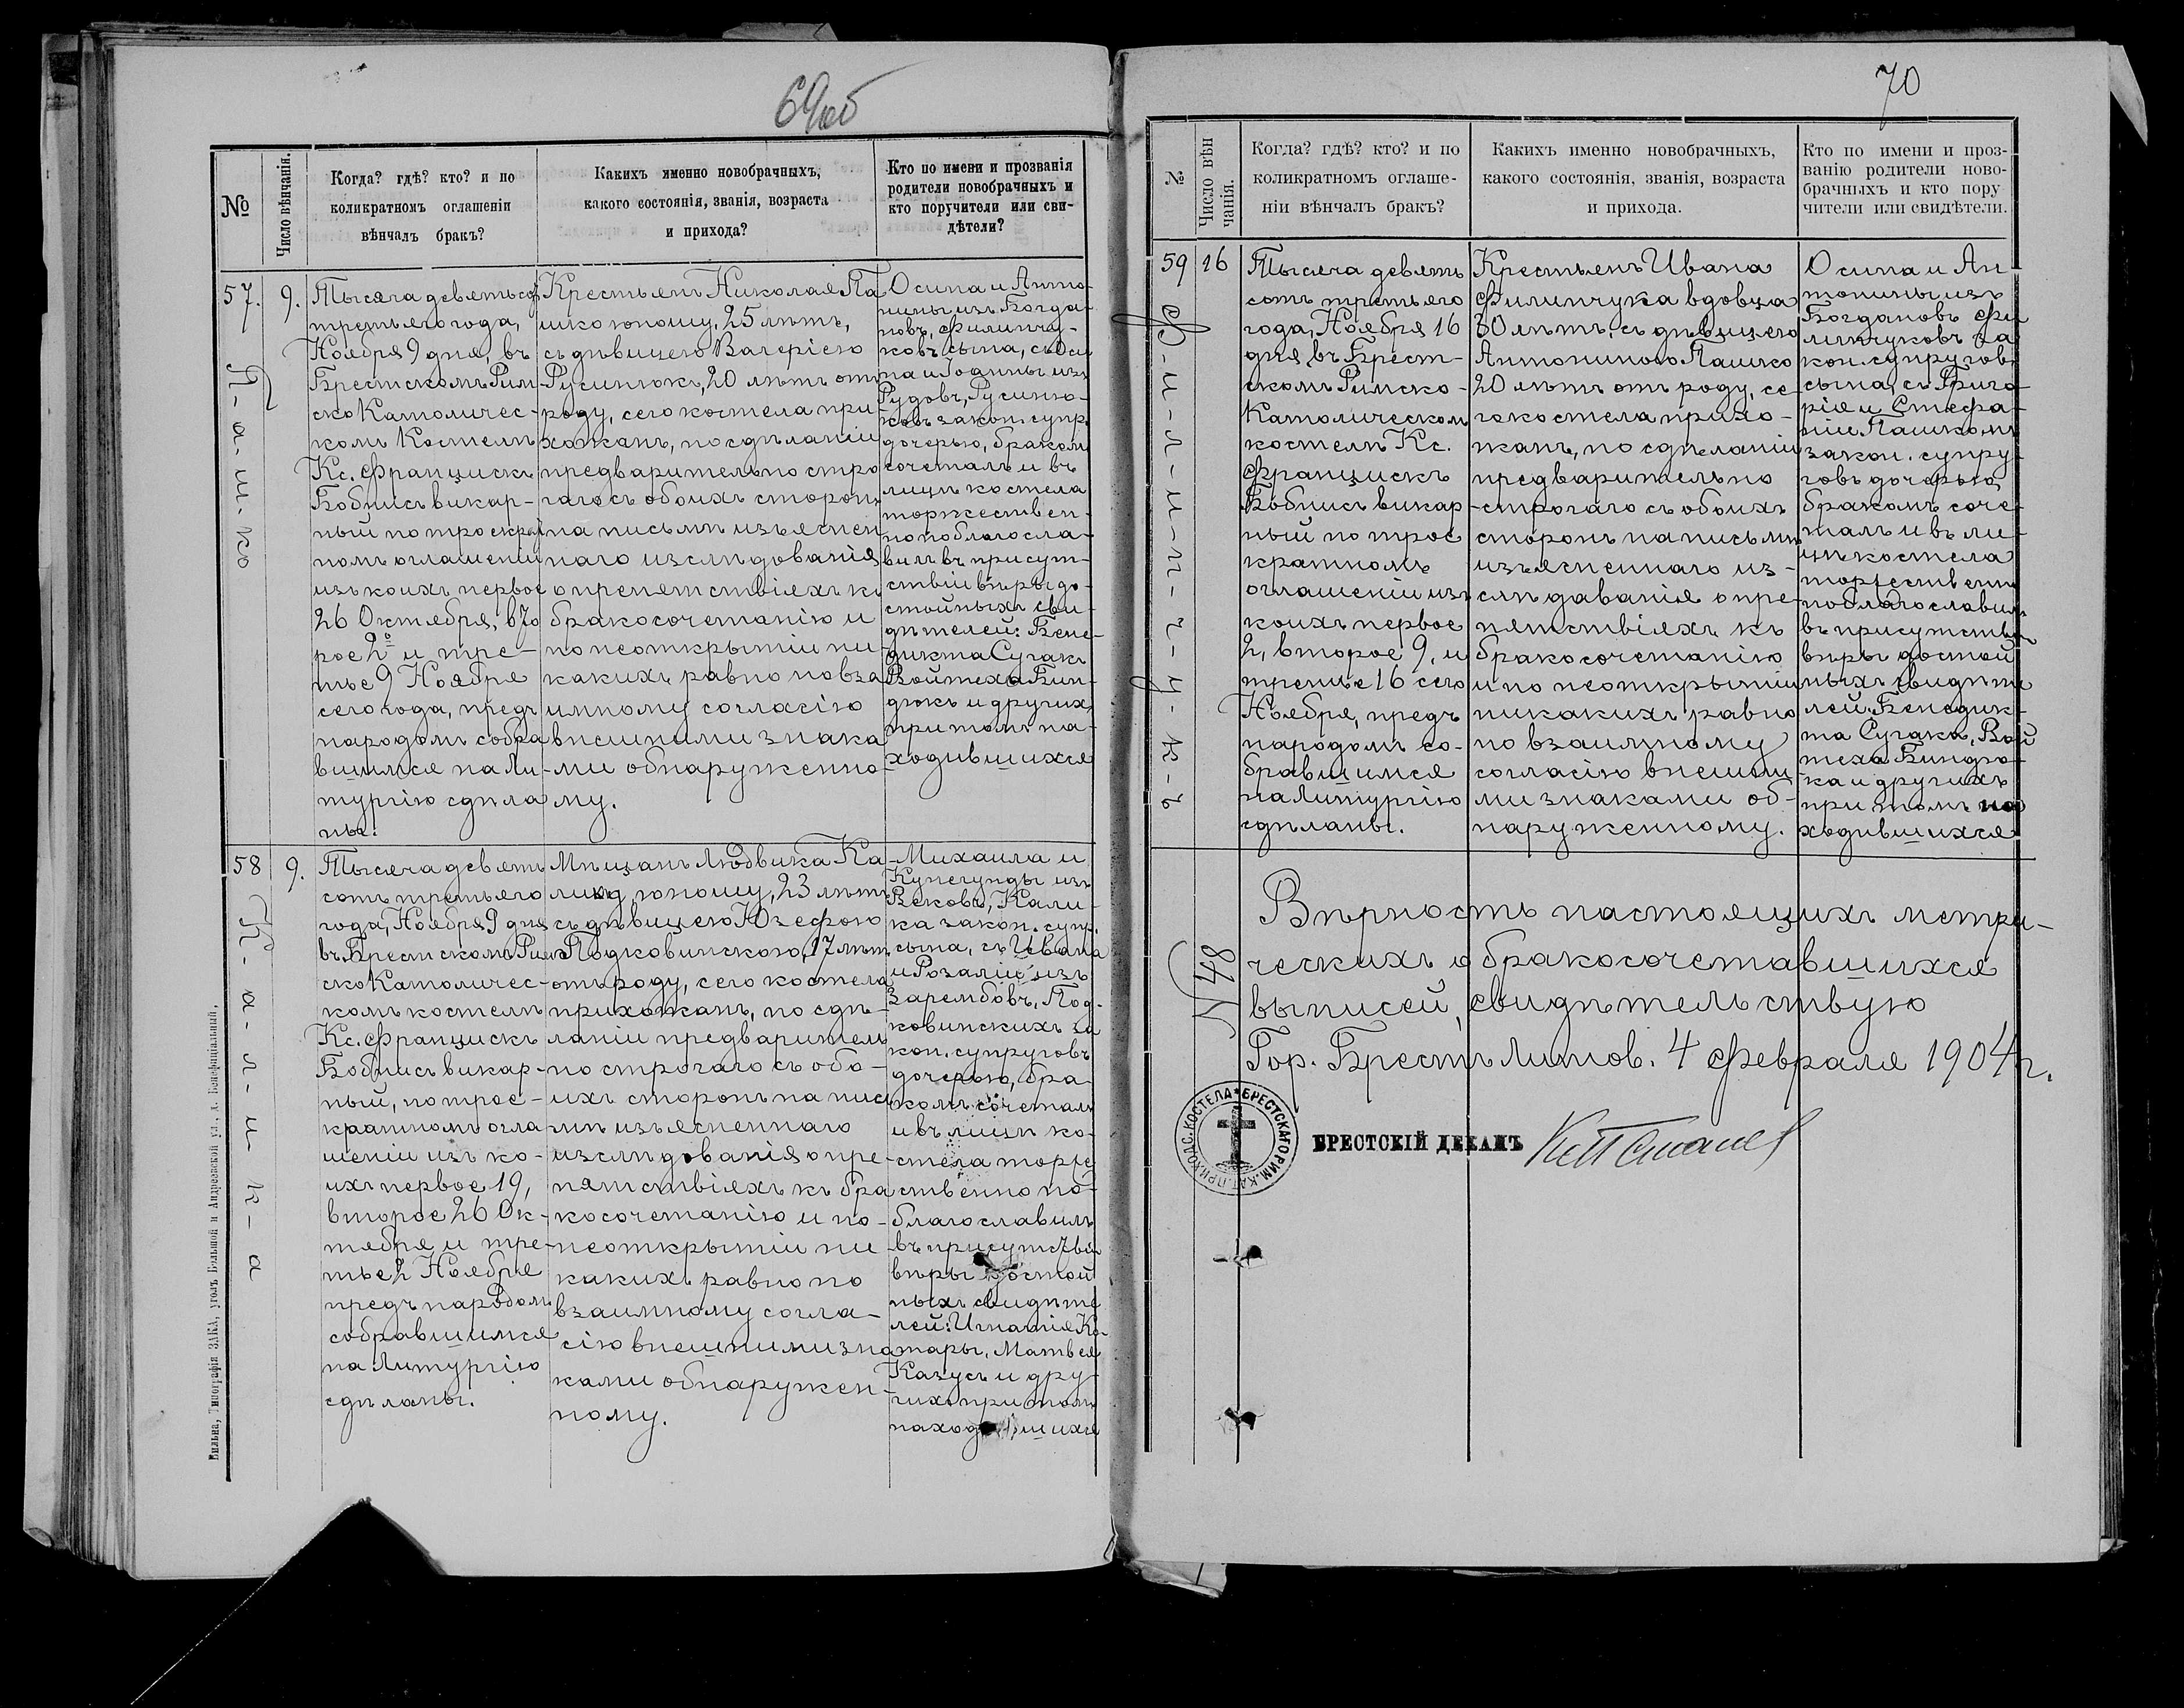 69об
№
Число вѣнчанія.
Когда? гдѣ? кто? и по
коликратномъ оглашеніи
вѣнчалъ бракъ?
Какихъ именно новобрачныхъ,
какого состоянія, званія, возраста
и прихода?
Кто по имени и прозванія
родители новобрачныхъ и
кто поручители или сви-
дѣтели?
57.
П-а-ш-ко
9.
Тысяча девятьсот
третьяго года,
Ноября 9 дня, въ
Брестскомъ Рим-
ско Католичес-
комъ Костелѣ
Кс. Францискъ
Бобнисъ викар-
ный по троекрат
номъ оглашеніи
изъ коихъ первое
26 Октября, вто
рое 2го и тре-
тье 9 Ноября
сего года, предъ
народомъ собра
вшимся на Ли-
тургію сдѣла
ны.
Крестьянъ Николая Па
шко юношу, 25 лѣтъ,
съ дѣвицею Валеріею
Русинюкъ, 20 лѣтъ отъ
роду, сего костела при-
хожанъ, по сдѣланіи
предварительно стро
гаго съ обоихъ сторонъ
на письмѣ изъяснен
наго изслѣдованія
о препятствіяхъ къ
бракосочетанію и
по неоткрытіи ни-
какихъ равно по вза
имному согласію
внешними знака
ми обнаруженно-
му.
Осипа и Анто-
нины изъ Богда-
новъ, Филипчу-
ковъ сына, съ Оси
па и Годины изъ
Рудовъ, Русиню-
ковъ закон. супр.
дочерью, бракомъ
сочеталъ и въ
лицѣ костела
торжествен-
но поблагосла-
вилъ въ присут-
ствіи вѣры до-
стойныхъ сви-
дѣтелей: Бене-
дикта Сугакъ
Войтеха Бин-
дюкъ и другихъ
при томъ на-
ходившихся
58
К-а-л-и-к-а
9.
Тысяча девять
сотъ третьяго
года, Ноября 9 дня
въ Брестскомъ Рим
ско Католичес-
комъ костелѣ
Кс. Францискъ
Бобнисъ викар-
ный, по трое-
кратномъ огла
шеніи изъ ко-
ихъ первое 19,
второе 26 Ок-
тября и тре-
тье 2 Ноября
предъ народомъ
собравшимся
на Литургію
сдѣланы.
Мѣщанъ Людвика Ка-
лику, юношу, 23 лѣтъ
съ дѣвицею Юзефою
Подковинскою, 17 лѣтъ
отъ роду, сего костела
прихожанъ, по сдѣ-
ланіи предваритель
но строгаго съ обо-
ихъ сторонъ на пись
мѣ изъясненнаго
изслѣдованія о пре-
пятствіяхъ къ бра
косочетанію и по-
неоткрытіи ни
какихъ равно по
взаимному согла-
сію внешними зна
ками обнаружен-
ному.
Михаила и
Кунегунды изъ
Вековъ, Кали-
ка закон. супр.
сына, съ Ивана
и Розаліи изъ
Зарембовъ, Под-
ковинскихъ за
кон. супруговъ
дочерью, бра
комъ сочеталъ
и въ лицѣ ко-
стела торже
ственно по-
благославилъ
въ присутствіи
вѣры достой
ныхъ свидѣте
лей: Игнатія Ко-
тары, Матвея
Казусъ и дру-
гихъ при томъ
находившихся
Вильна, Типографія ЗАКА, уголъ Большой и Андреевской ул., д. Бенефиціальный.
70
№
Число вѣн
чанія.
Когда? гдѣ? кто? и по
коликратномъ оглаше-
ніи вѣнчалъ бракъ?
Какихъ именно новобрачныхъ,
какого состоянія, званія, возраста
и прихода.
Кто по имени и проз-
ванію родители ново-
брачныхъ и кто пору
чители или свидѣтели.
59
Ф-и-л-и-п-ч-у-к-ъ
16
Тысяча девять
сотъ третьяго
года, Ноября 16
дня въ Брест-
скомъ Римско-
Католическомъ
костелѣ Кс.
Францискъ
Бобнисъ викар
ный по трое
кратномъ
оглашеніи изъ
коихъ первое
2, второе 9, и
третье 16 сего
Ноября, предъ
народомъ со-
бравшимся
на Литургію
сдѣланы.
Крестьянъ Ивана
Филипчука вдовца
30 лѣтъ, съ дѣвицею
Антониною Пашко
20 лѣтъ отъ роду, се-
го костела прихо-
жанъ, по сдѣланіи
предварительно
строгаго съ обоихъ
сторонъ на письмѣ
изъясненнаго из-
слѣдаванія о пре-
пятствіяхъ къ
бракосочетанію
и по неоткрытіи
никакихъ равно
по взаимному
согласію внешни
ми знаками об-
наруженному.
Осипа и Ан
тонины изъ
Богдановъ Фи
липчуковъ за
кон. супругов
сына, съ Григо-
рія и Стефа-
ніи Пашковъ
закон. супру-
говъ дочерью,
бракомъ соче-
талъ и въ ли-
цѣ костела
торжественно
поблагославилъ
въ присутствіи
вѣры достой
ныхъ свидѣте
лей: Бенедик-
та Сугака, Вой
теха Биндю-
ка и другихъ
при томъ на
ходившихся
Вѣрность настоящихъ метри-
ческихъ о бракосочетавшихся
выписей, свидѣтельствую
N 48
Гор. Брестъ Литов. 4 февраля 1904 г.
БРЕСТСКАГО РИМ. КАТ. ПРИХОДС. КОСТЕЛА
БРЕСТСКІЙ ДЕКАНЪ